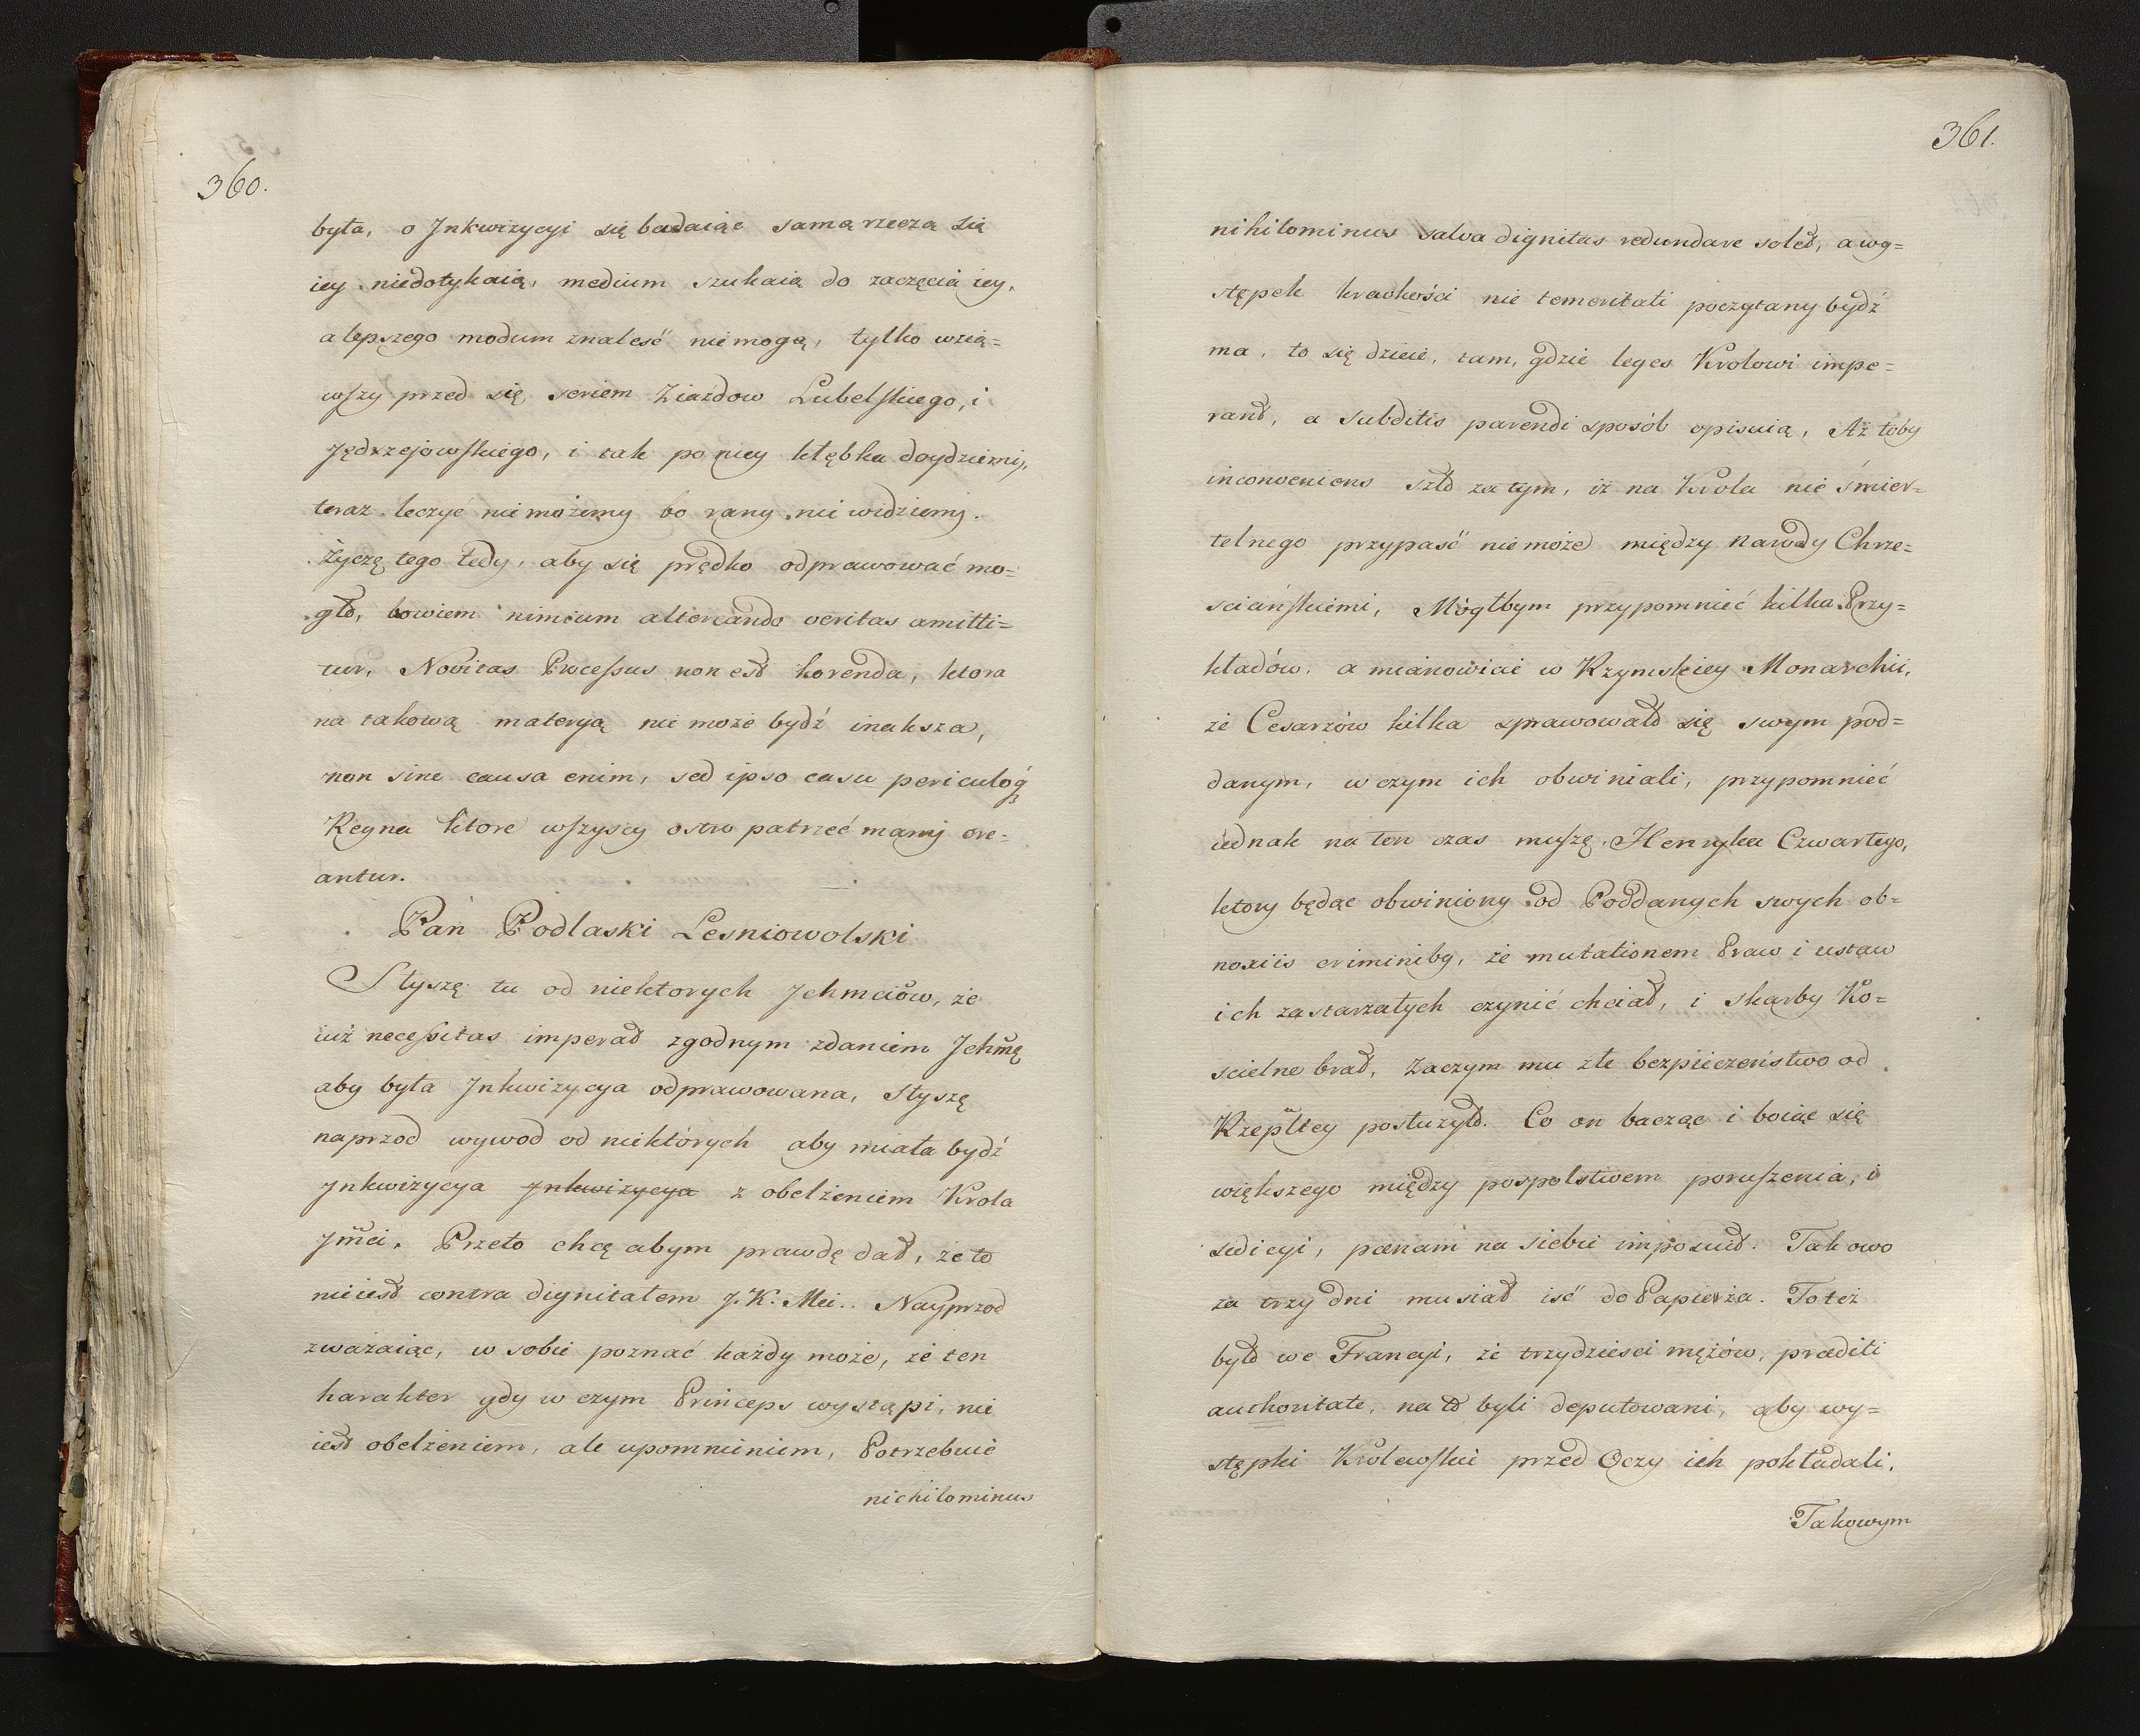 360.
była, o Jnkwizycyi się badaiąc samą rzeczą się
iey niedotykaią, medium szukaią do zaczęcia iey,
a lepszego modum znaleść niemogą, tylko wzią=
wſzy przed się seriem Ziazdow Lubelſkiego, i
Jędrzejowſkiego, i tak po niey kłębka doydziemy,
teraz leczyć nie możemy bo rany nie widziemy.
Życzę tego tedy, aby się prędko odprawować mo=
gło, bowiem nimium altercando veritas amitti=
tur, Novitas Proceſsus non est horenda, ktora
na takową materyą nie może bydź inaksza,
non sine causa enim, sed ipso casu
Regna ktore wſzyscy ostro patrzeć mamy ore=
antur.
Pan Podlaski Lesniowolski
Słyszę tu od niektorych Jchmciów, że
iuż neceſsitas imperat zgodnym zdaniem
aby była Jnkwizycya odprawowana, słyszę
naprzod wywod od niektórych aby miała bydź
Jnkwizycya Jnkwizycya z obelżeniem Krola
Jmci. Przeto chcę abym prawdę dał, że to
nieiest contra dignitatem J. K. Mci.. Nayprzod
zważaiąc, w sobie poznać każdy może, że ten
harakter gdy w czym Princeps wystąpi, nie
iest obelżeniem, ale upomnieniem, Potrzebuie
nichilominus
361.
nihilominus salva dignitas redundare solet, a wy=
stępek krewkości nie temeritati poczytany bydź
ma, to się dzieie, tam, gdzie leges Krolowi impe=
rant, a subditis parendi sposób opisuią, Aż toby
inconveniens szło za tym, iż na Krola nie śmier=
telnego przypaść niemoże między narody Chrze=
sciańſkiemi, Mógłbym przypomnieć kilka Przy=
kładów, a mianowicie w Rzymskiey Monarchii,
że Cesarzów kilka sprawowało się swym pod=
danym, w czym ich obwiniali, przypomnieć
iednak na ten czas muſzę, Henryka Czwartego,
ktory będąc obwiniony od Poddanych swych ob=
noxiis criminibg, że mutationem Praw i ustaw
ich zastarzałych czynić chciał, i skarby Ko=
scielne brał, Zaczym mu źle bezpieczeństwo od
Rzepltey posłużyło. Co on bacząc i boiąc się
większego między pospolstwem poruſzenia, i
sedicyi, pænam na siebie imposuit. Takowo
za trzy dni musiał iść do Papieża. To też
było we Francyi, że trzydziesci mężów, præditi
authoritate, na to byli deputowani, aby wy=
stępki Królewſkie przed Oczy ich pokładali.
Takowym